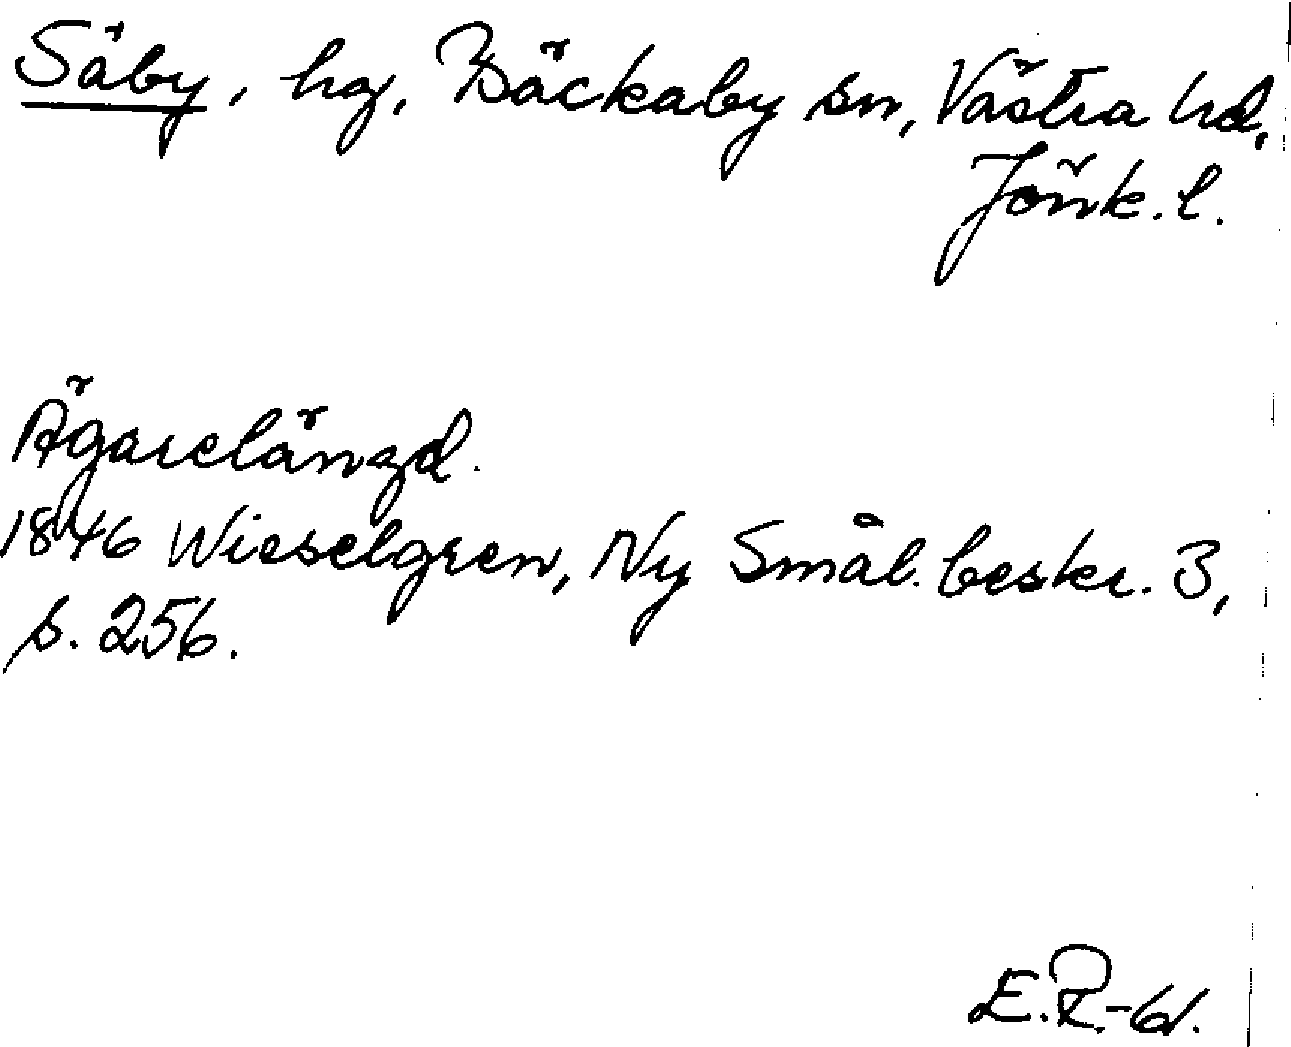 Säby, hg, Bäckaby sn, Västra hd,
Jönk. l.
Ägarelängd.
1846 Wieselgren, Ny Smål. beskr. 3,
s. 256.
E.R.-61.